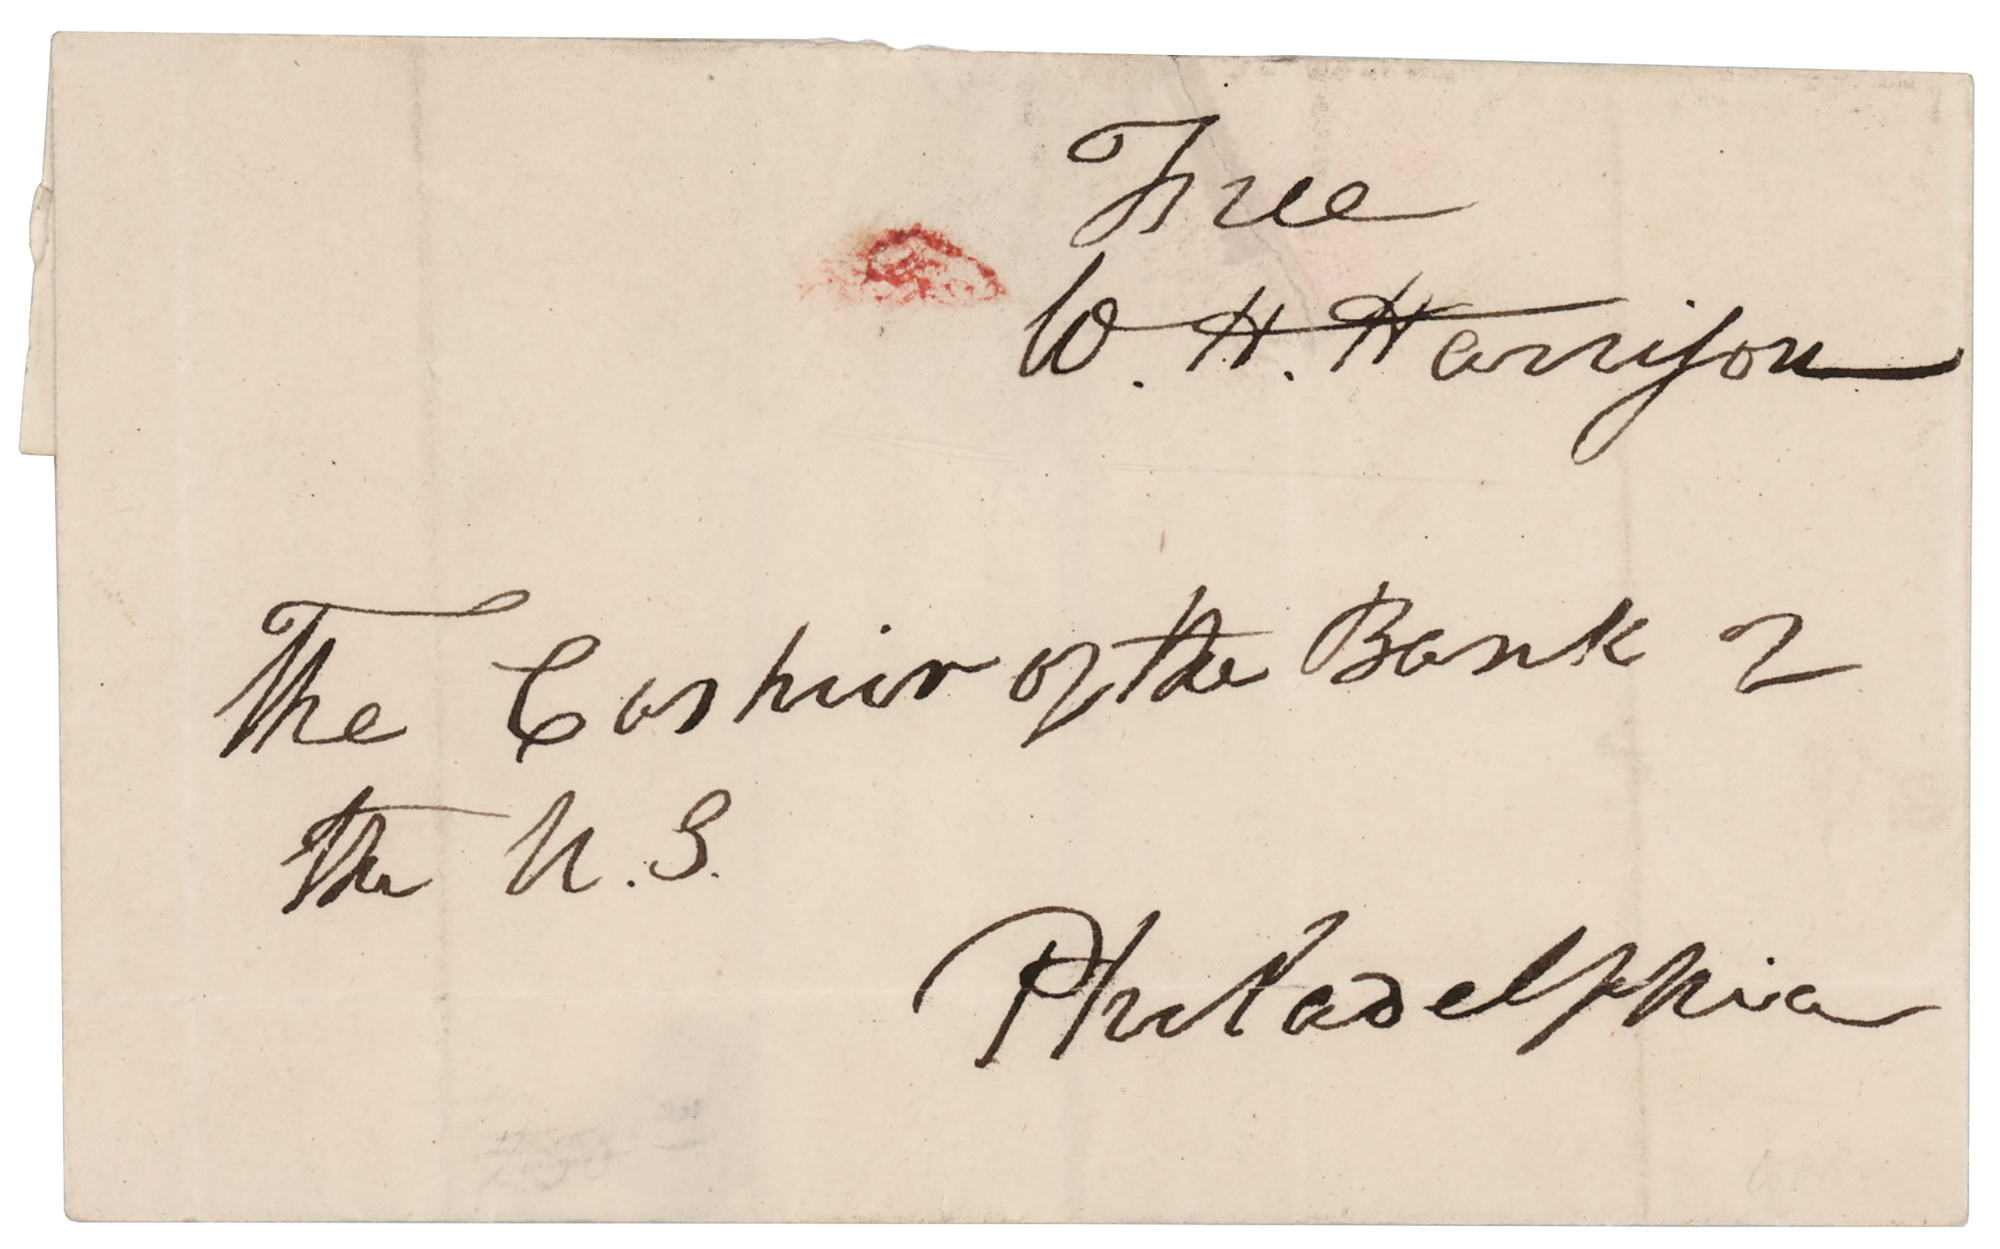 Free
W. H. Harrison
The Cashier of the Bank of
the U.S.
Philadelphia